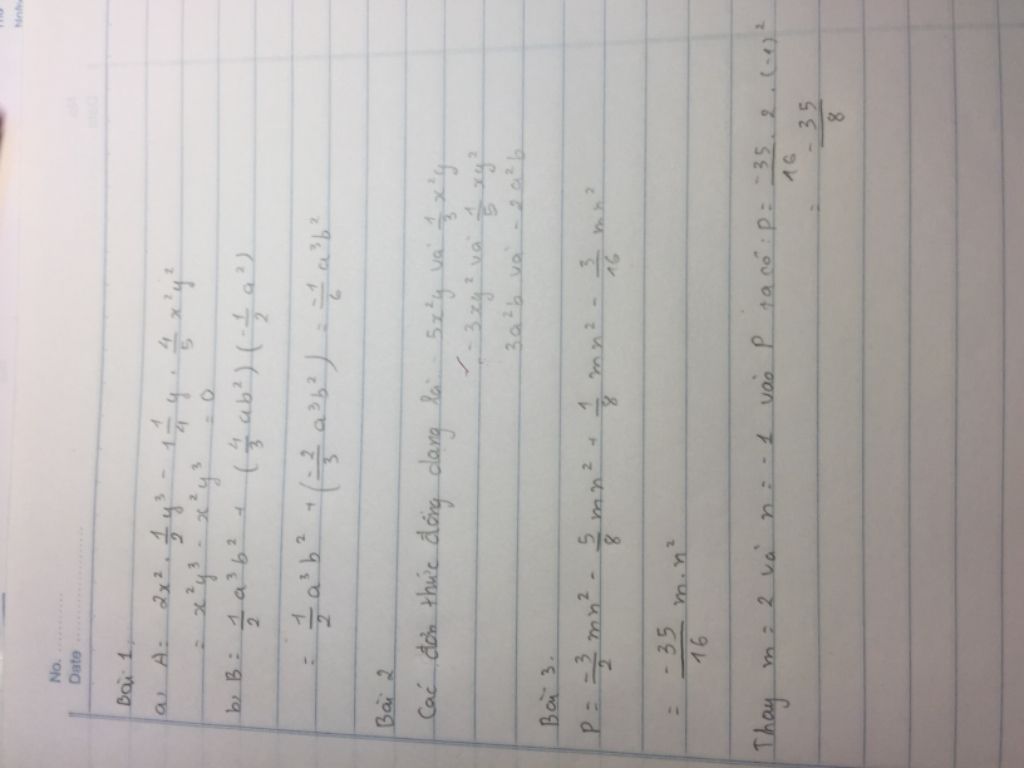 No.
Date
Bài 1,
a, A = 2x². 1/2 y³ - 1 1/4 y . 4/5 x²y²
= x²y³ - x²y³ = 0
b, B = 1/2 a³b² + (4/3 ab²) (-1/2 a²)
= 1/2 a³b² + (-2/3 a³b²) = -1/6 a³b²
Bài 2
Các đơn thức đồng dạng là - 5x²y và 1/3 x²y
- 3xy² và 1/5 xy²
3a²b và - 2a²b
Bài 3.
P = -3/2 mn² - 5/8 mn² + 1/8 mn² - 3/16 mn²
= -35/16 m.n²
Thay m = 2 và n = -1 vào P ta có: P = -35/16 . 2 . (-1)²
= -35/8